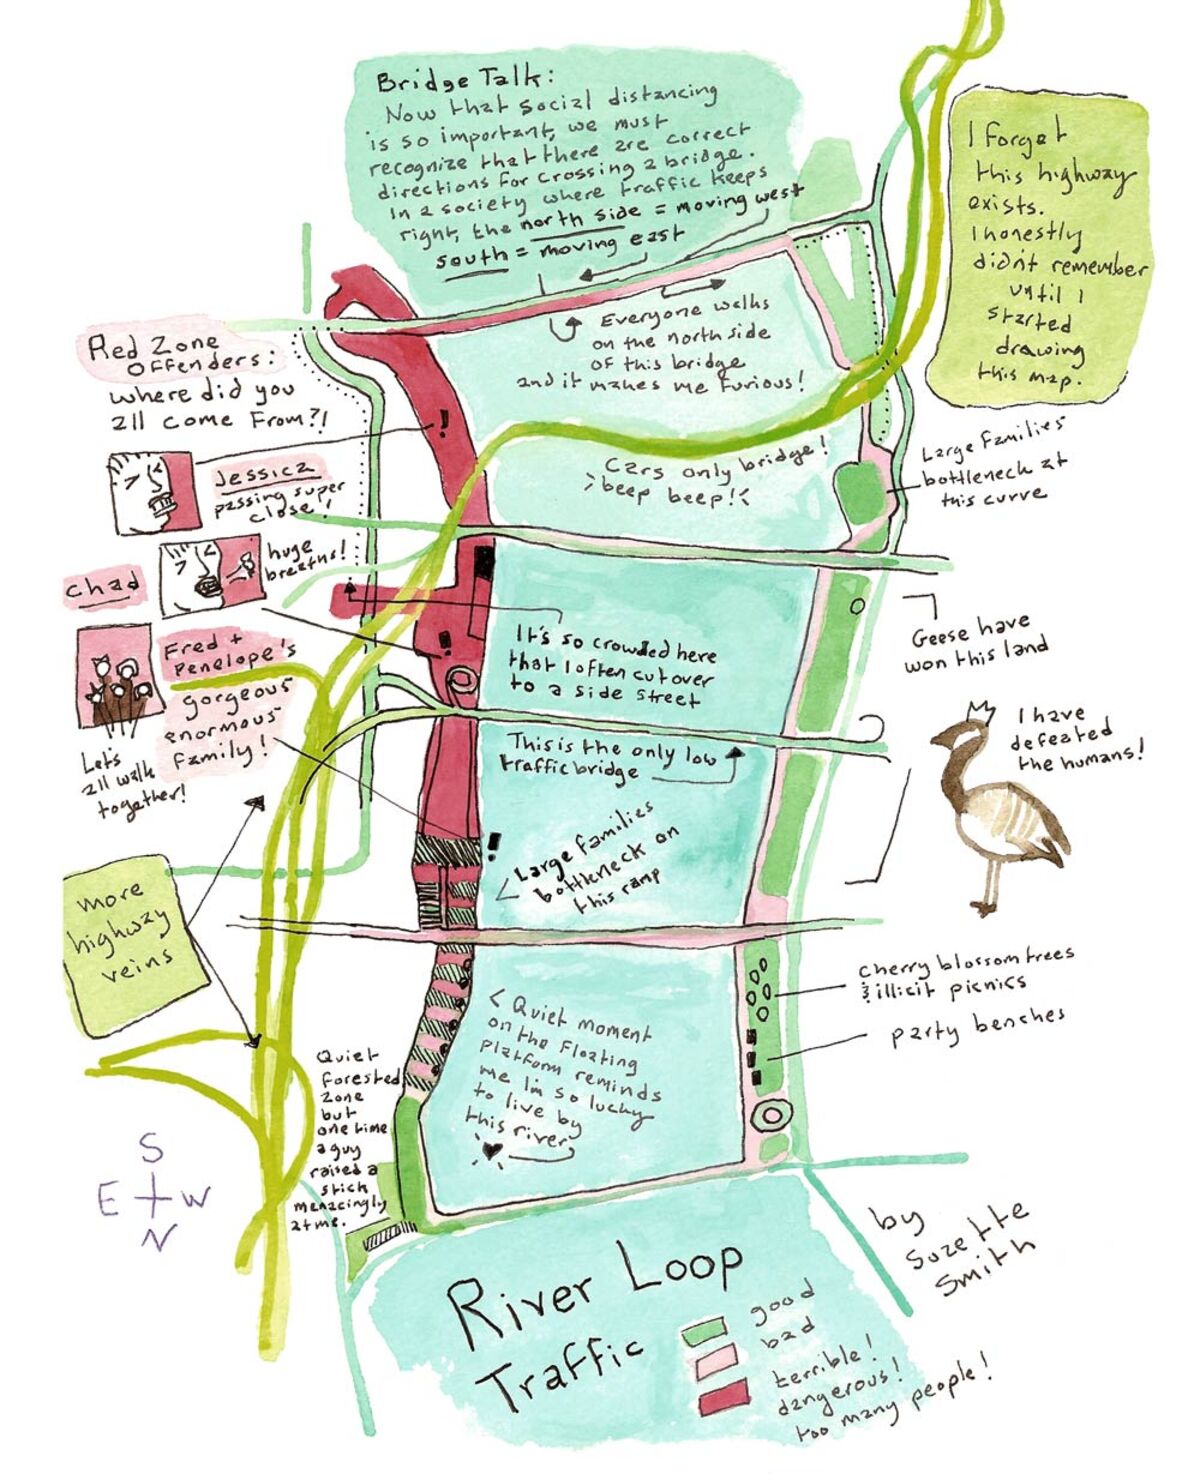 Bridge Talk:
Now that social distancing
is so important, we must
recognize that there are correct
directions for crossing a bridge.
In a society where traffic keeps
right, the north side = moving west
south = moving east
I forget
this highway
exists.
I honestly
didn't remember
until I
started
drawing
this map.
Red Zone
Offenders:
where did you
all come from?!
Everyone walks
on the north side
of this bridge
and it makes me furious!
Cars only bridge!
beep beep!
Large families
bottleneck at
this curve
Jessica
passing super
close!
!
chad
huge
breaths!
!
Fred +
Penelope's
gorgeous
enormous
family!
Let's
all walk
together!
It's so crowded here
that I often cut over
to a side street
Geese have
won this land
I have
defeated
the humans!
This is the only low
traffic bridge
!
Large families
bottleneck on
this ramp
more
highway
veins
cherry blossom trees
& illicit picnics
party benches
Quiet moment
on the floating
platform reminds
me I'm so lucky
to live by
this river
Quiet
forested
zone
but
one time
a guy
raised a
stick
menacingly
at me.
S
E W
N
by
Suzette
Smith
River Loop
Traffic
good
bad
terrible!
dangerous!
too many people!